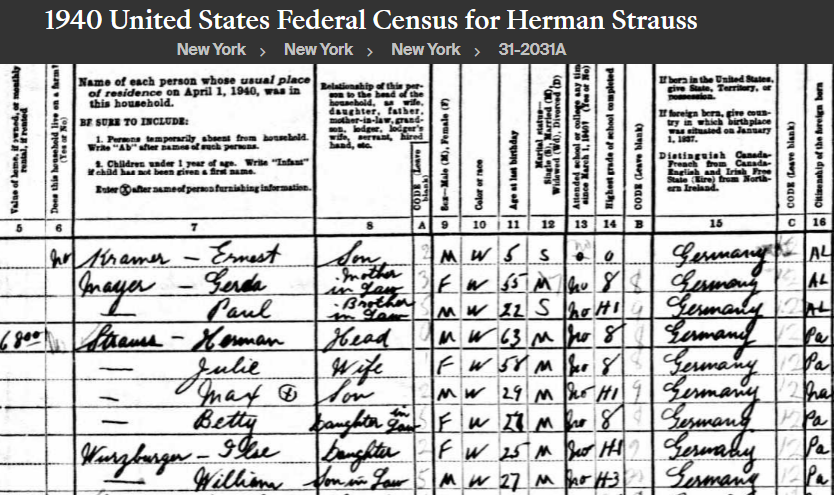 1940 United States Federal Census for Herman Strauss
New York > New York > New York > 31-2031A
Value of home, if owned, or monthly rental, if rented
Does this household live on a farm? (Yes or No)
Name of each person whose usual place
of residence on April 1, 1940, was in
this household.
BE SURE TO INCLUDE:
1. Persons temporarily absent from household.
Write "Ab" after names of such persons.
2. Children under 1 year of age. Write "Infant"
if child has not been given a first name.
Enter ⓧ after name of person furnishing information.
Relationship of this per-
son to the head of the
household, as wife,
daughter, father,
mother-in-law, grand-
son, lodger, lodger's
wife, servant, hired
hand, etc.
CODE (Leave blank)
Sex—Male (M), Female (F)
Color or race
Age at last birthday
Marital status—
Single (S), Married (M),
Widowed (Wd), Divorced (D)
Attended school or college any time
since March 1, 1940? (Yes or No)
Highest grade of school completed
CODE (Leave blank)
If born in the United States,
give State, Territory, or
possession.
If foreign born, give coun-
try in which birthplace
was situated on January
1, 1937.
Distinguish Canada-
French from Canada-
English and Irish Free
State (Eire) from North-
ern Ireland.
CODE (Leave blank)
Citizenship of the foreign born
5 6 7 8 A 9 10 11 12 13 14 B 15 C 16
no Kramer — Ernest Son M W 5 S 0 Germany AL
Mayer — Gerda Mother in Law F W 55 M no 8 Germany AL
— Paul Brother in Law M W 22 S no H1 Germany AL
6800 Strauss — Herman Head M W 63 M no 8 Germany Pa
— Julie Wife F W 58 M no 8 Germany Pa
— Max ⓧ Son M W 29 M no H1 Germany na
— Betty Daughter in Law F W M no 8 Germany Pa
Wurzburger — Ilse Daughter F W 25 M no H1 Germany Pa
— William Son in Law M W 27 M no H3 Germany Pa